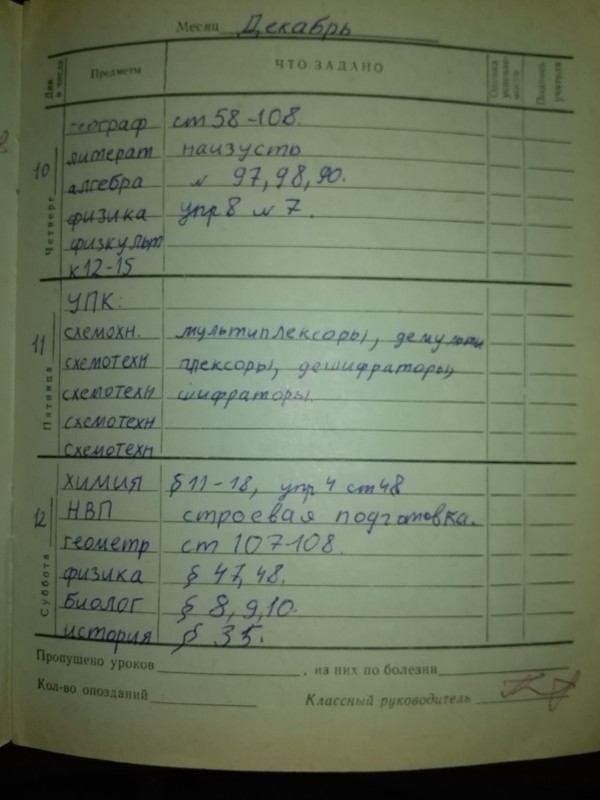 Месяц Декабрь
Дни и числа Предметы ЧТО ЗАДАНО Оценка успевае- мости Подпись учителя
10 Четверг
географ ст 58-108.
литерат наизусть
алгебра № 97, 98, 90.
физика упр 8 № 7.
физкульт
к 12-15
11 Пятница
УПК:
схемохн. мультиплексоры, демульти
схемотехн плексоры, дешифраторы,
схемотехн шифраторы.
схемотехн
схемотехн
12 Суббота
химия § 11-18, упр 4 ст 48
НВП строевая подготовка.
геометр ст 107-108.
физика § 47, 48.
биолог § 8, 9, 10.
история § 35.
Пропущено уроков , из них по болезни
Кол-во опозданий Классный руководитель